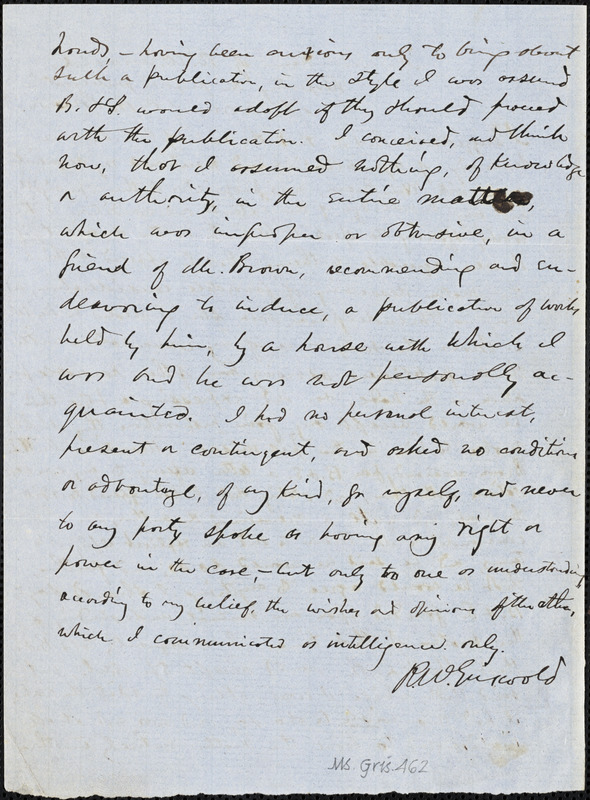 hands, – having been anxious only to bring about
such a publication, in the style I was assured
B. & S. would adopt if they should proceed
with the publication. I conceived, and think
now, that I assumed nothing, of knowledge
or authority, in the entire matter,
which was improper or obtrusive, in a
friend of Mr. Brown, recommending and en-
deavoring to induce, a publication of works
held by him, by a house with which I
was and he was not personally ac-
quainted. I had no personal interest,
present or contingent, and asked no condition
or advantage, of any kind, for myself, and never
to any party spoke as having any right or
power in the case, – but only to one as understanding
according to my belief, the wishes and opinions of the other,
which I communicated as intelligence only.
R.W. Griswold
Ms. Gris. 462